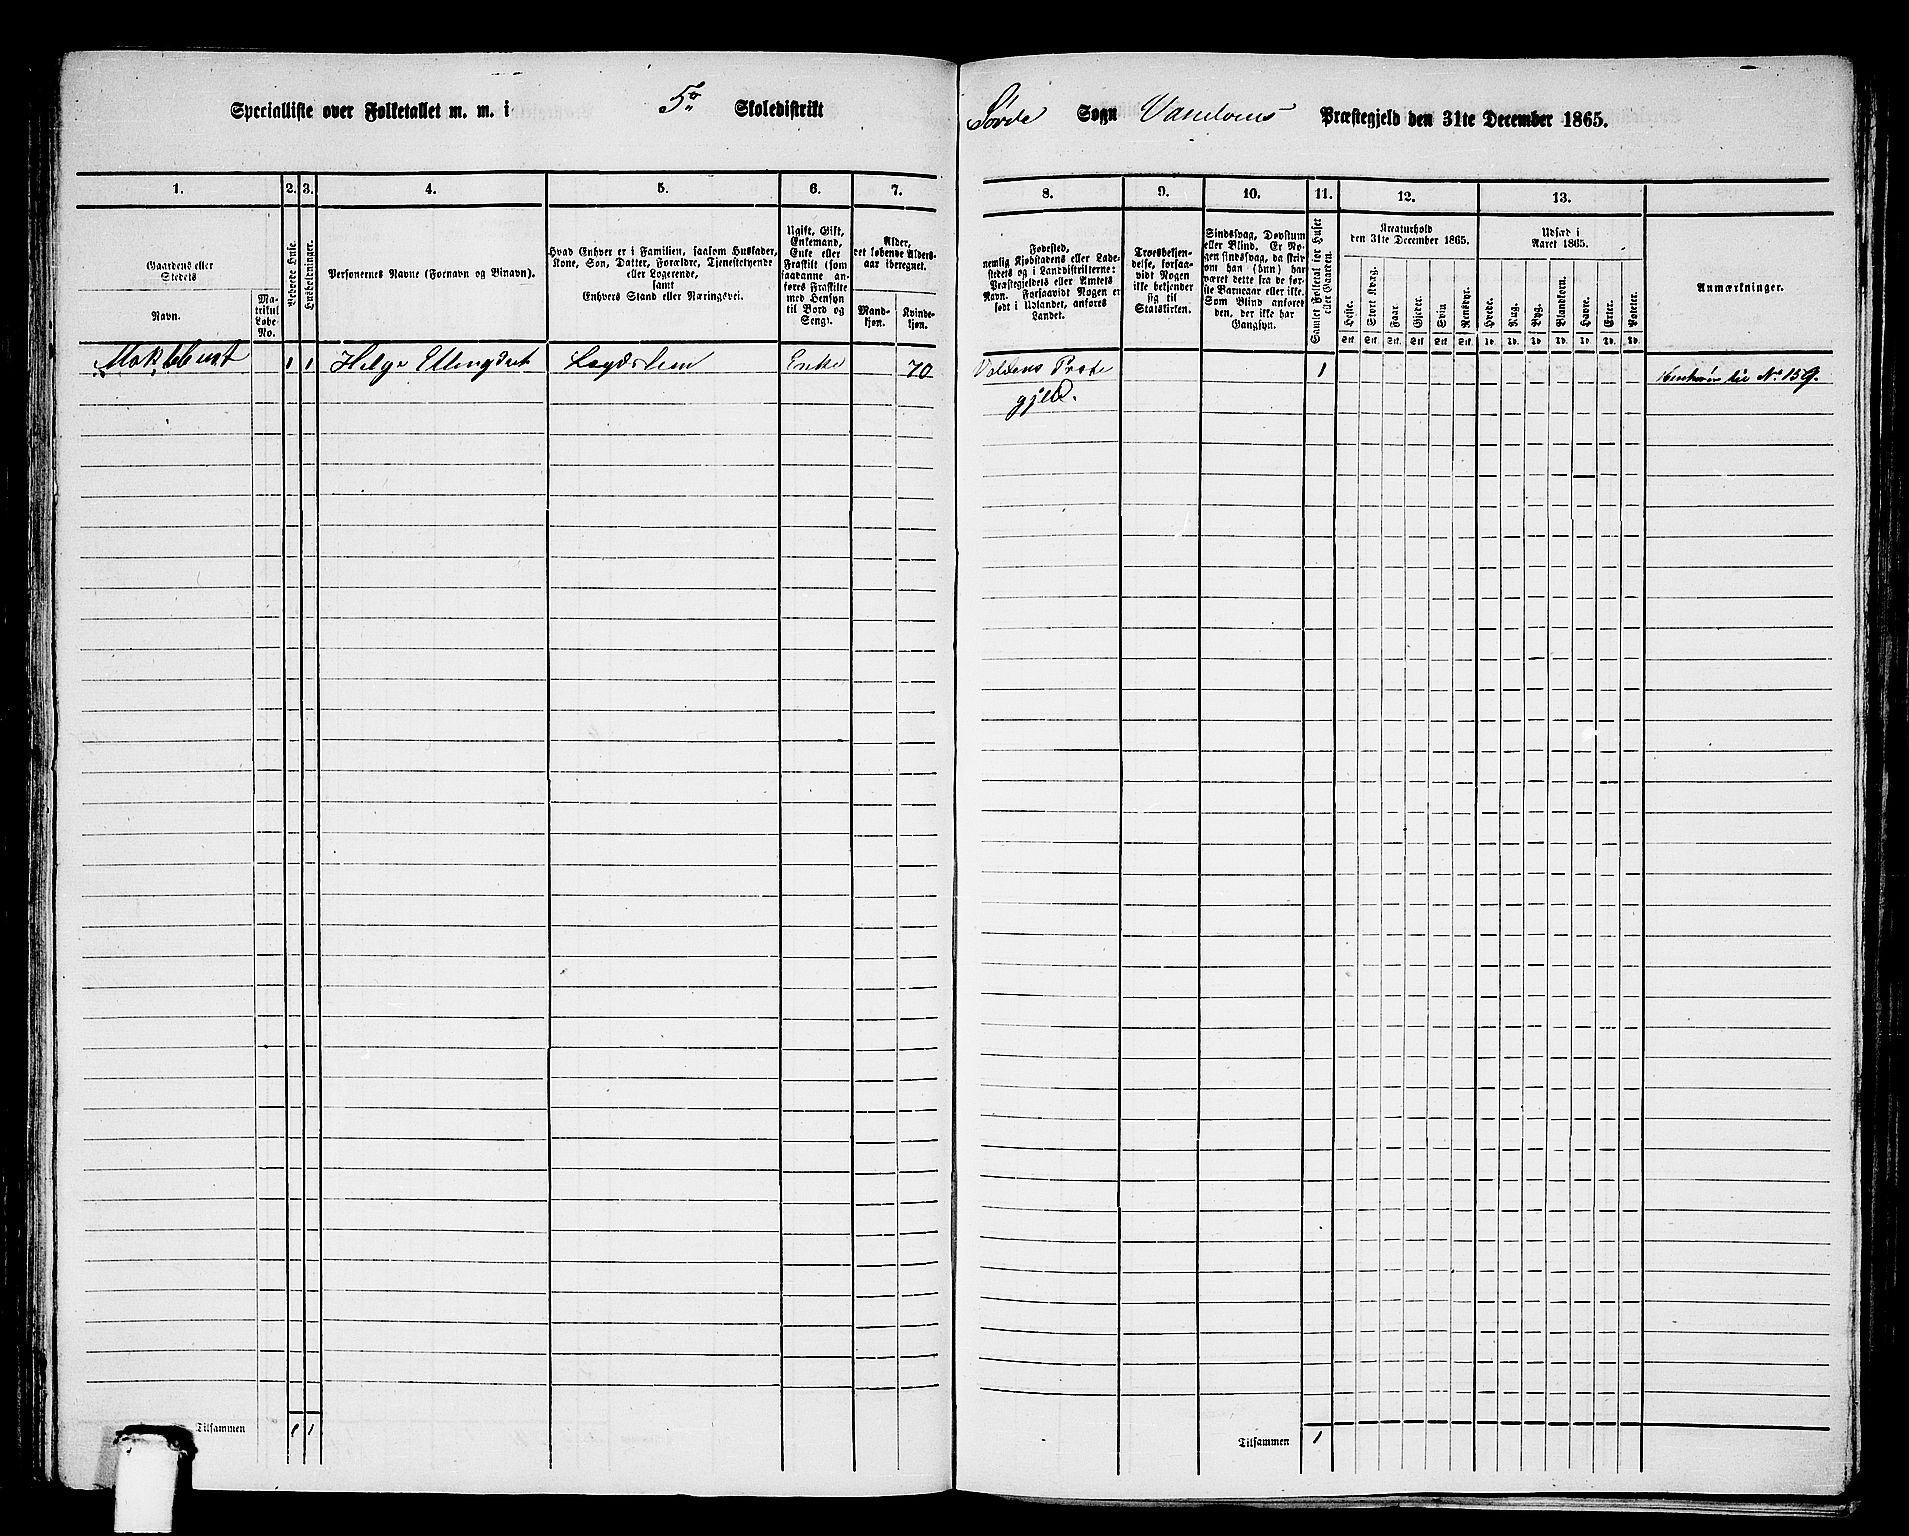 Specialliste over Folketallet m. m. i 5te Skoledistrikt
Sørde Sogn Vanelvens Præstegjeld den 31te December 1865.
1. 2. 3. 4. 5. 6. 7.
8. 9. 10. 11. 12. 13.
Gaardens eller Stedets
Navn.
Matrikul Løbe-No.
Beboede Huse.
Husholdninger.
Personernes Navne (Fornavn og Binavn).
Hvad Enhver er i Familien, saasom Husfader,
Kone, Søn, Datter, Forældre, Tjenestetyende
eller Logerende,
samt
Enhvers Stand eller Næringsvei.
Ugift, Gift,
Enkemand,
Enke eller
Fraskilt (som
saadanne an-
føres Fraskilte
med Hensyn
til Bord og
Seng).
Alder,
det løbende Alders-
aar iberegnet.
Mand-
kjøn.
Kvinde-
kjøn.
Fødested,
nemlig Kjøbstadens eller Lade-
stedets og i Landdistrikterne:
Præstegjeldets eller Amtets
Navn. Forsaavidt Nogen er
født i Udlandet, anføres
Landet.
Troesbekjen-
delse, forsaa-
vidt Nogen
ikke bekjender
sig til
Statskirken.
Sindssvag, Døvstum
eller Blind. Er No-
gen sindssvag, da skriv
om han (hun) har
været dette fra de før-
ste Barneaar eller ikke.
Som Blind anføres
den, der ikke har
Gangsyn.
Samlet Folketal for Huset
eller Gaarden.
Kreaturhold
den 31te December 1865.
Heste.
Stort Kvæg.
Faar.
Gjeder.
Svin.
Rensdyr.
Udsæd i
Aaret 1865.
Hvede.
Rug.
Byg.
Blandkorn.
Havre.
Erter.
Poteter.
Stk. Stk. Stk. Stk. Stk. Stk. Td. Td. Td. Td. Td. Td. Td.
Anmærkninger.
1 1 Helge Ellingsdat Lægdslem Enke 70 1 No 159.
gjeld.
Tilsammen 1 1
Tilsammen 1